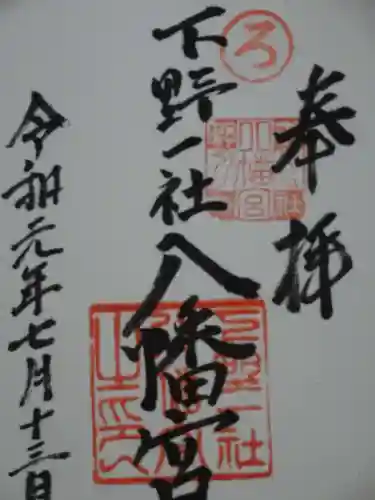 奉拝
ろ
下野一社八幡宮
令和元年七月十三日